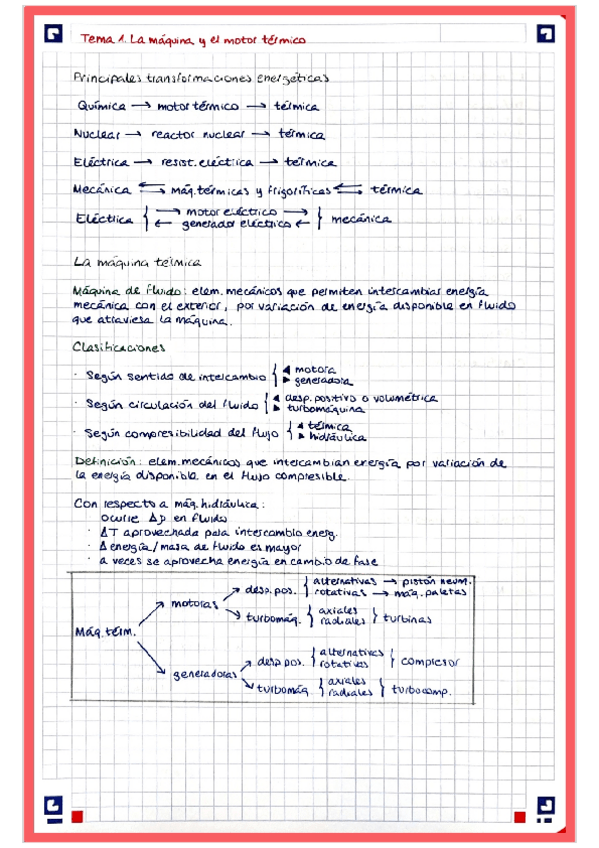 Tema 1. La máquina y el motor térmico
Principales transformaciones energéticas
Química → motor térmico → térmica
Nuclear → reactor nuclear → térmica
Eléctrica → resist. eléctrica → térmica
Mecánica ⇆ máq. térmicas y frigoríficas ⇆ térmica
Eléctrica { → motor eléctrico → } mecánica
← generador eléctrico ←
La máquina térmica
Máquina de fluido: elem. mecánicos que permiten intercambiar energía
mecánica con el exterior, por variación de energía disponible en fluido
que atraviesa la máquina.
Clasificaciones
· Según sentido de intercambio { ◀ motora
▶ generadora
· Según circulación del fluido { ◀ desp. positivo o volumétrica
▶ turbomáquina
· Según compresibilidad del flujo { ◀ térmica
▶ hidráulica
Definición: elem. mecánicos que intercambian energía por variación de
la energía disponible en el flujo compresible.
Con respecto a máq. hidráulica:
· ocurre Δρ en fluido
· ΔT aprovechada para intercambio energ.
· Δ energía/masa de fluido es mayor
· a veces se aprovecha energía en cambio de fase
Máq. térm.
motoras
desp. pos. { alternativas → pistón neum.
rotativas → máq. paletas
turbomáq. { axiales
radiales } turbinas
generadoras
desp. pos. { alternativas
rotativas } compresor
turbomáq { axiales
radiales } turbocomp.